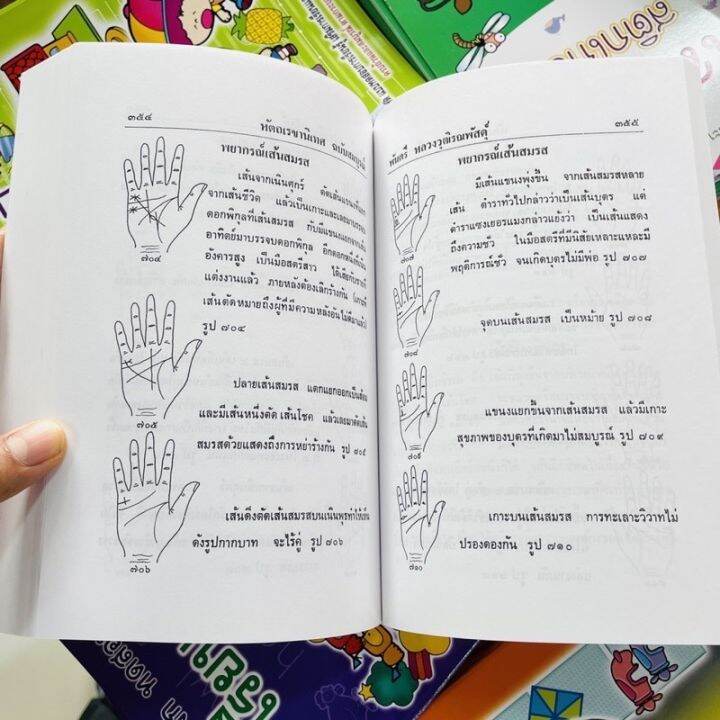 ๓๕๔
หัตถเรขานิเทศ ฉบับสมบูรณ์
พยากรณ์เส้นสมรส
เส้นจากเนินศุกร์ ตัดเส้นแขนงที่แยก
จากเส้นชีวิต แล้วเป็นเกาะและเลยมาบรรจบ
ดอกพิกุลที่เส้นสมรส กับมีแขนงแยกจากเส้น
อาทิตย์มาบรรจบดอกพิกุล อีกดอกหนึ่งที่เนิน
อังคารสูง เป็นมือสตรีสาว ได้เสียกับชายที่
แต่งงานแล้ว ภายหลังต้องเลิกร้างกัน
เส้นตัดหมายถึงผู้ที่มีความหลังอันไม่ดีมาแล้ว)
รูป ๗๐๔
๗๐๔
ปลายเส้นสมรส แตกแยกออกเป็นสอง
และมีเส้นหนึ่งตัด เส้นโชค แล้วเลยมาตัดเส้น
สมรสด้วยแสดงถึงการหย่าร้างกัน รูป ๗๐๕
๗๐๕
เส้นดิ่งตัดเส้นสมรสบนเนินพุธทำให้เป็น
ดังรูปกากบาท จะไร้คู่ รูป ๗๐๖
๗๐๖
พันตรี หลวงวุฒิรณพัสดุ์
๓๕๕
พยากรณ์เส้นสมรส
มีเส้นแขนงพุ่งขึ้น จากเส้นสมรสหลาย
เส้น ตำราทั่วไปกล่าวว่าเป็นเส้นบุตร แต่
ตำราแซงเยอรแมงกล่าวแย้งว่า เป็นเส้นแสดง
ถึงความชั่ว ในมือสตรีที่มีนิสัยเหลาะแหละมี
พฤติการณ์ชั่ว จนเกิดบุตรไม่มีพ่อ รูป ๗๐๗
๗๐๗
จุดบนเส้นสมรส เป็นหม้าย รูป ๗๐๘
๗๐๘
แขนงแยกขึ้นจากเส้นสมรส แล้วมีเกาะ
สุขภาพของบุตรที่เกิดมาไม่สมบูรณ์ รูป ๗๐๙
๗๐๙
เกาะบนเส้นสมรส การทะเลาะวิวาทไม่
ปรองดองกัน รูป ๗๑๐
๗๑๐